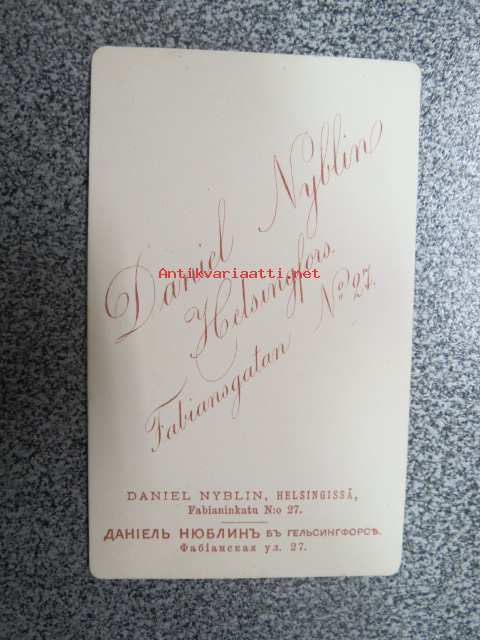 Daniel Nyblin
Helsingfors.
Fabiansgatan No 27.
Antikvariaatti.net
DANIEL NYBLIN, HELSINGISSÄ,
Fabianinkatu N:o 27.
ДАНІЕЛЬ НЮБЛИНЪ БЪ ГЕЛЬСИНГФОРСѢ.
Фабіанская ул. 27.